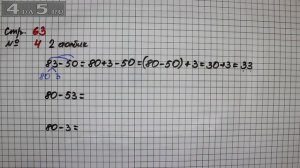 4 ДА 5.NET
Стр. 63
№ 4 2 столбик
83-50=80+3-50=(80-50)+3=30+3=33
80 3
80-53=
80-3=